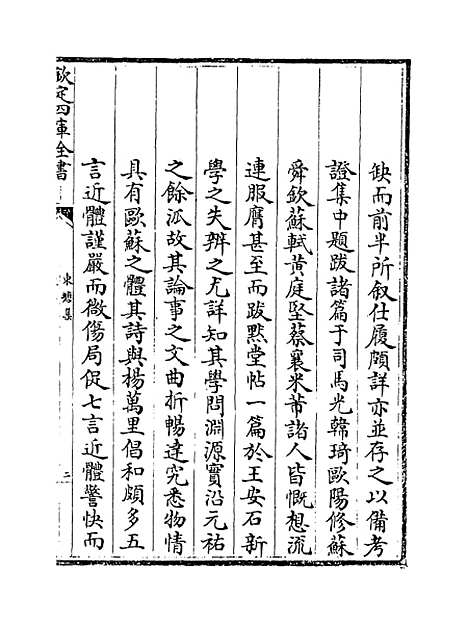 缺而前半所叙仕履頗詳亦並存之以備考
證集中題跋諸篇于司馬光韓琦歐陽修蘇
舜欽蘇軾黃庭堅蔡襄米芾諸人皆慨想流
連服膺甚至而跋默堂帖一篇於王安石新
學之失辨之尤詳知其學問淵源實沿元祐
之餘派故其論事之文曲折暢達究悉物情
具有歐蘇之體其詩與楊萬里倡和頗多五
言近體謹嚴而微傷局促七言近體警快而
欽定四庫全書
東塘集
二